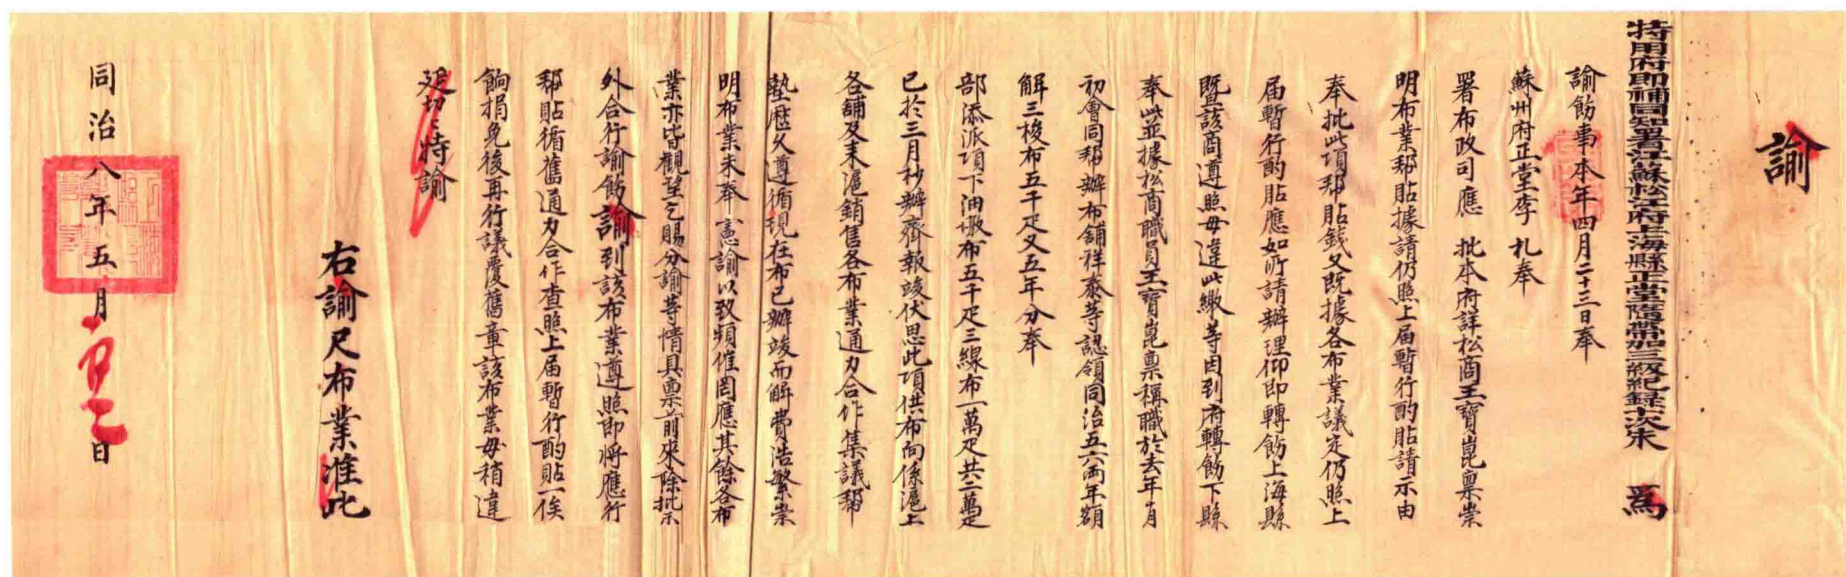 諭
特用府即補同知署江蘇松江府上海縣正堂隨帶加三級紀錄十次朱 爲
諭飭事本年四月二十三日奉
蘇州府正堂李 札奉
署布政司應 批本府詳松商王寶崑禀崇
明布業幫貼據請仍照上屆暫行酌貼請示由
奉批此項幫貼錢文既據各布業議定仍照上
屆暫行酌貼應如所請辦理仰即轉飭上海縣
暨該商遵照毋違此繳等因到府轉飭下縣
奉此並據松商職員王寶崑禀稱職於去年月
初會同幫辦布舖祥泰等認領同治五六兩年額
解三梭布五千疋又五年分奉
部添派項下油墩布五千疋三線布一萬疋共二萬疋
已於三月杪辦齊報竣伏思此項供布向係滬上
各舖及來滬銷售各布業通力合作集議幫
墊歷久遵循現在布已辦竣而解費浩繁崇
明布業未奉 憲諭以致頻催罔應其餘各布
業亦皆觀望乞賜分諭等情具禀前來除批示
外合行諭飭諭到該布業遵照即將應行
幫貼循舊通力合作查照上屆暫行酌貼一俟
餉捐免後再行議覆舊章該布業毋稍違
延切切特諭
右諭尺布業准此
同治八年五月 日